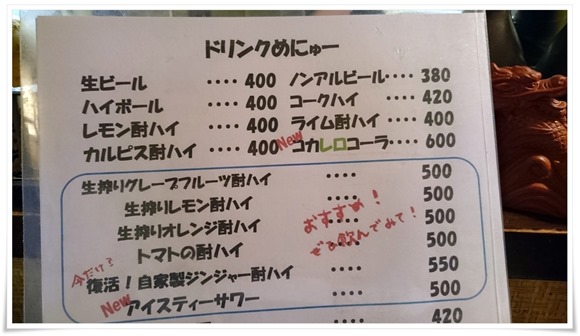 ドリンクめにゅー
生ビール ‥‥ 400 ノンアルビール‥‥ 380
ハイボール ‥‥ 400 コークハイ ‥‥ 420
レモン酎ハイ ‥‥ 400 ライム酎ハイ ‥‥ 400
カルピス酎ハイ ‥‥ 400 New コカレロコーラ‥‥ 600
生搾りグレープフルーツ酎ハイ ‥‥ 500
生搾りレモン酎ハイ ‥‥ 500
生搾りオレンジ酎ハイ ‥‥ 500
トマトの酎ハイ ‥‥ 500
おすすめ!
ぜひ飲んでみて!
今だけ?
復活!自家製ジンジャー酎ハイ ‥‥ 550
New アイスティーサワー ‥‥ 500
420